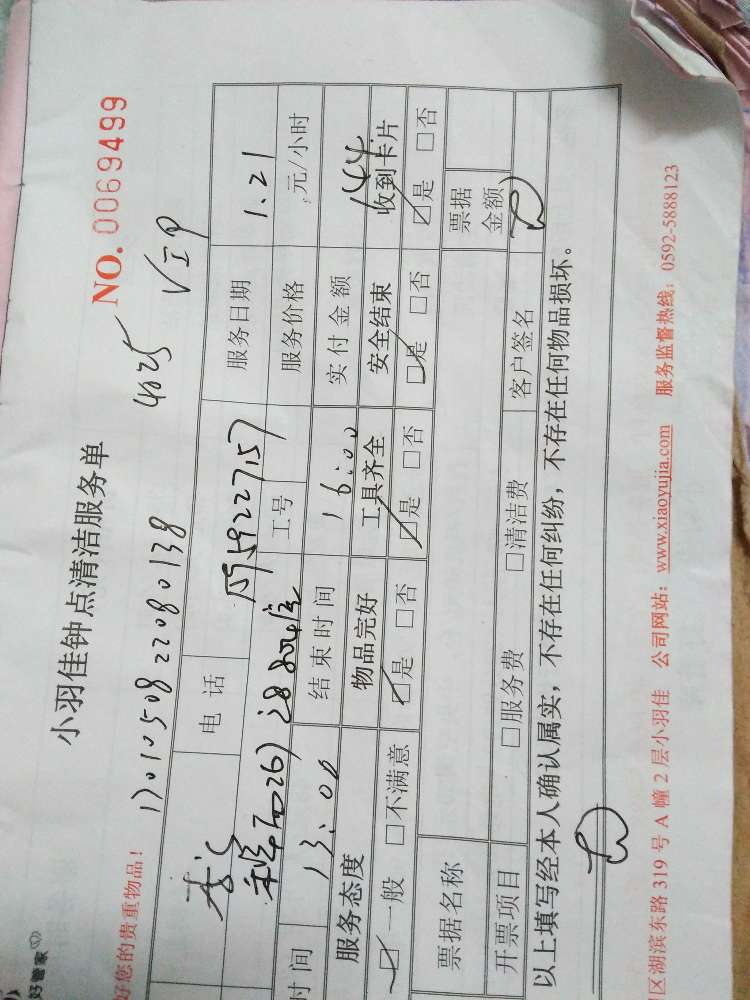 小羽佳钟点清洁服务单
NO. 0069499
好管家
好您的贵重物品！
1701050822080138 4025 VIP
电 话 15959227157 服务日期 1.21
工号 服务价格 元/小时
时间 13:00 结束时间 16:00 实付金额 144
服务态度 物品完好 工具齐全 安全结束 收到卡片
☑一般 □不满意 ☑是 □否 ☑是 □否 ☑是 □否 ☑是 □否
票据名称 票据金额
开票项目 □服务费 □清洁费 客户签名
以上填写经本人确认属实，不存在任何纠纷，不存在任何物品损坏。
区湖滨东路 319 号 A 幢 2 层小羽佳 公司网站：www.xiaoyujia.com 服务监督热线：0592-5888123